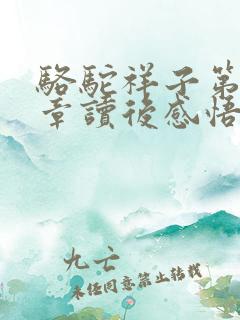 駱駝祥子第
章讀後感悟
九亡
未經同意禁止轉載